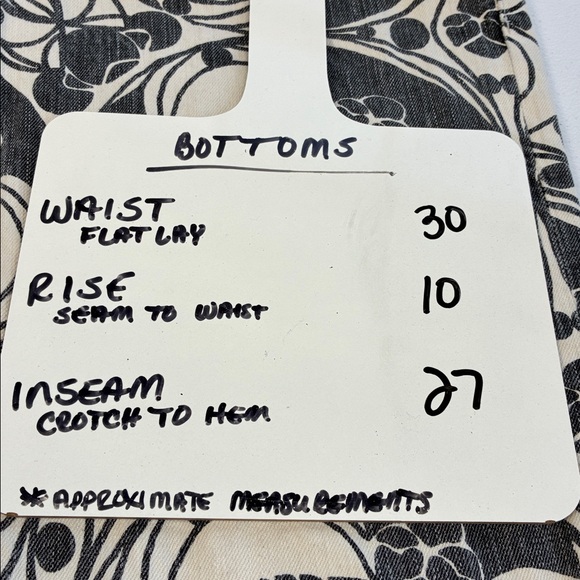 BOTTOMS
WAIST 30
FLAT LAY
RISE 10
SEAM TO WAIST
INSEAM 27
CROTCH TO HEM
*APPROXIMATE MEASUREMENTS